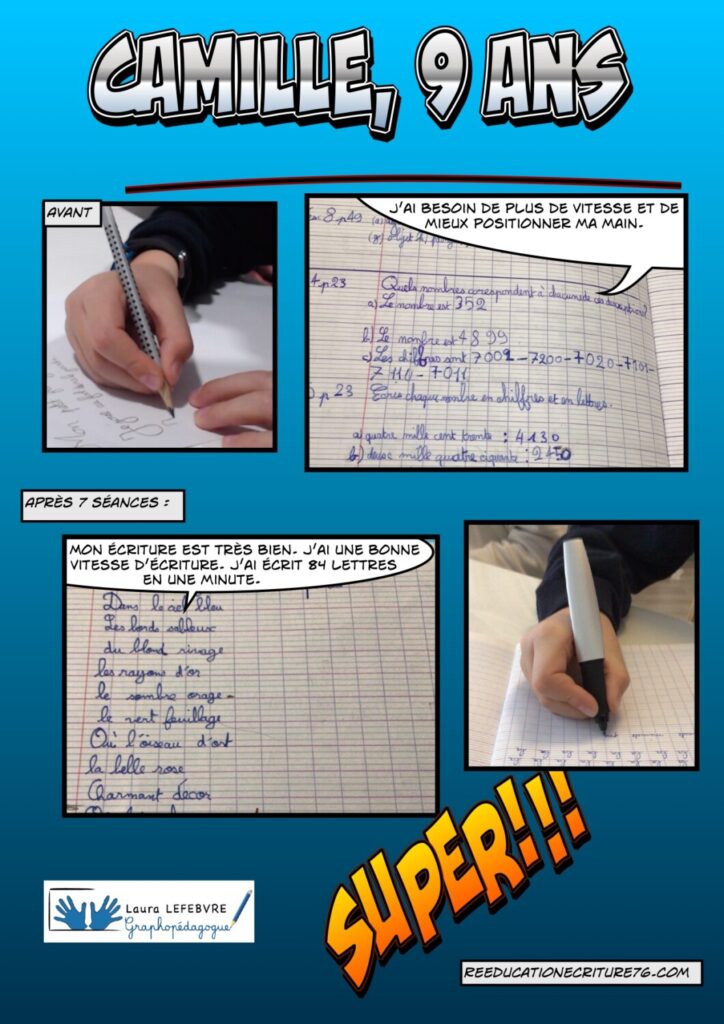 CAMILLE, 9 ANS
AVANT
J'AI BESOIN DE PLUS DE VITESSE ET DE
MIEUX POSITIONNER MA MAIN.
8 p49
4 p23 Quels nombres correspondent à chacune de ces
a) Le nombre est 352
b) Le nombre est 4899
c) Les chiffres sont 7002-7200-7020-7101-
7110-7011
p 23 Écris chaque nombre en chiffres et en lettres.
a) quatre mille cent trente : 4130
b) deux mille quatre ciquante : 2450
APRÈS 7 SÉANCES :
MON ÉCRITURE EST TRÈS BIEN. J'AI UNE BONNE
VITESSE D'ÉCRITURE. J'AI ÉCRIT 84 LETTRES
EN UNE MINUTE.
Dans le ciel bleu
Les bords sableux
du blond rivage
les rayons d'or
le sombre orage
le vert feuillage
Où l'oiseau d'ort
la belle rose
Charmant décor
SUPER!!!
Laura LEFEBVRE
Graphopédagogue
REEDUCATIONECRITURE76.COM